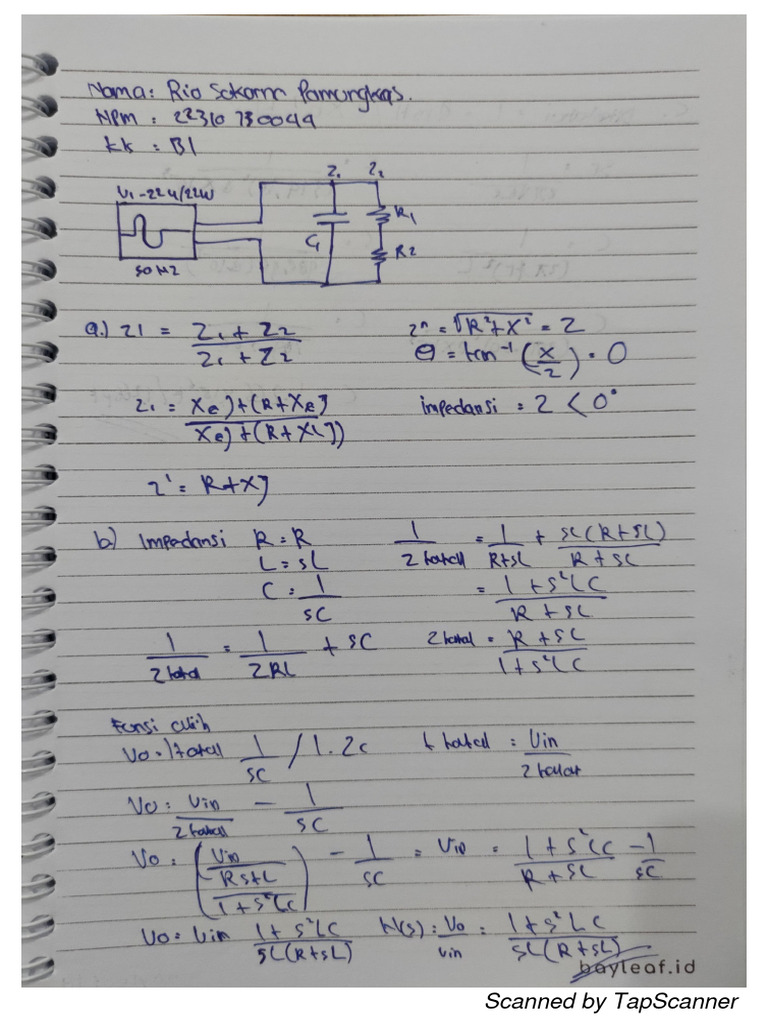 Nama : Rio Sokarno Pamungkas.
NPM : 22310730044
KK : B1
V1 - 22u/22w
50 Hz
Z1 Z2
C1
R1
R2
a.) Z1 = Z1 + Z2 / Z1 + Z2
Z^n = √R²+X² = Z
θ = tan⁻¹ (X/2) = 0
Z1 = Xc) + (R+Xc) / Xc) + (R+XL))
impedansi = Z < 0°
Z' = R+XJ
b) Impedansi R = R
L = sL
C = 1/sC
1/Ztotal = 1/ZRL + sC
1/Ztotal = 1/R+sL + sC(R+sL)/R+sC
= 1+s²LC / R+sL
Ztotal = R+sL / 1+s²LC
Funsi alih
Vo = Itotal 1/sC / 1.2c
I total = Vin/Ztotal
Vo = Vin/Ztotal - 1/sC
Vo = (Vin / R+sL / 1+s²LC) - 1/sC = Vin = 1+s²LC / R+sL - 1/sC
Vo = Vin 1+s²LC / sL(R+sL)
H(s) : Vo/Vin = 1+s²LC / sL(R+sL)
bayleaf.id
Scanned by TapScanner